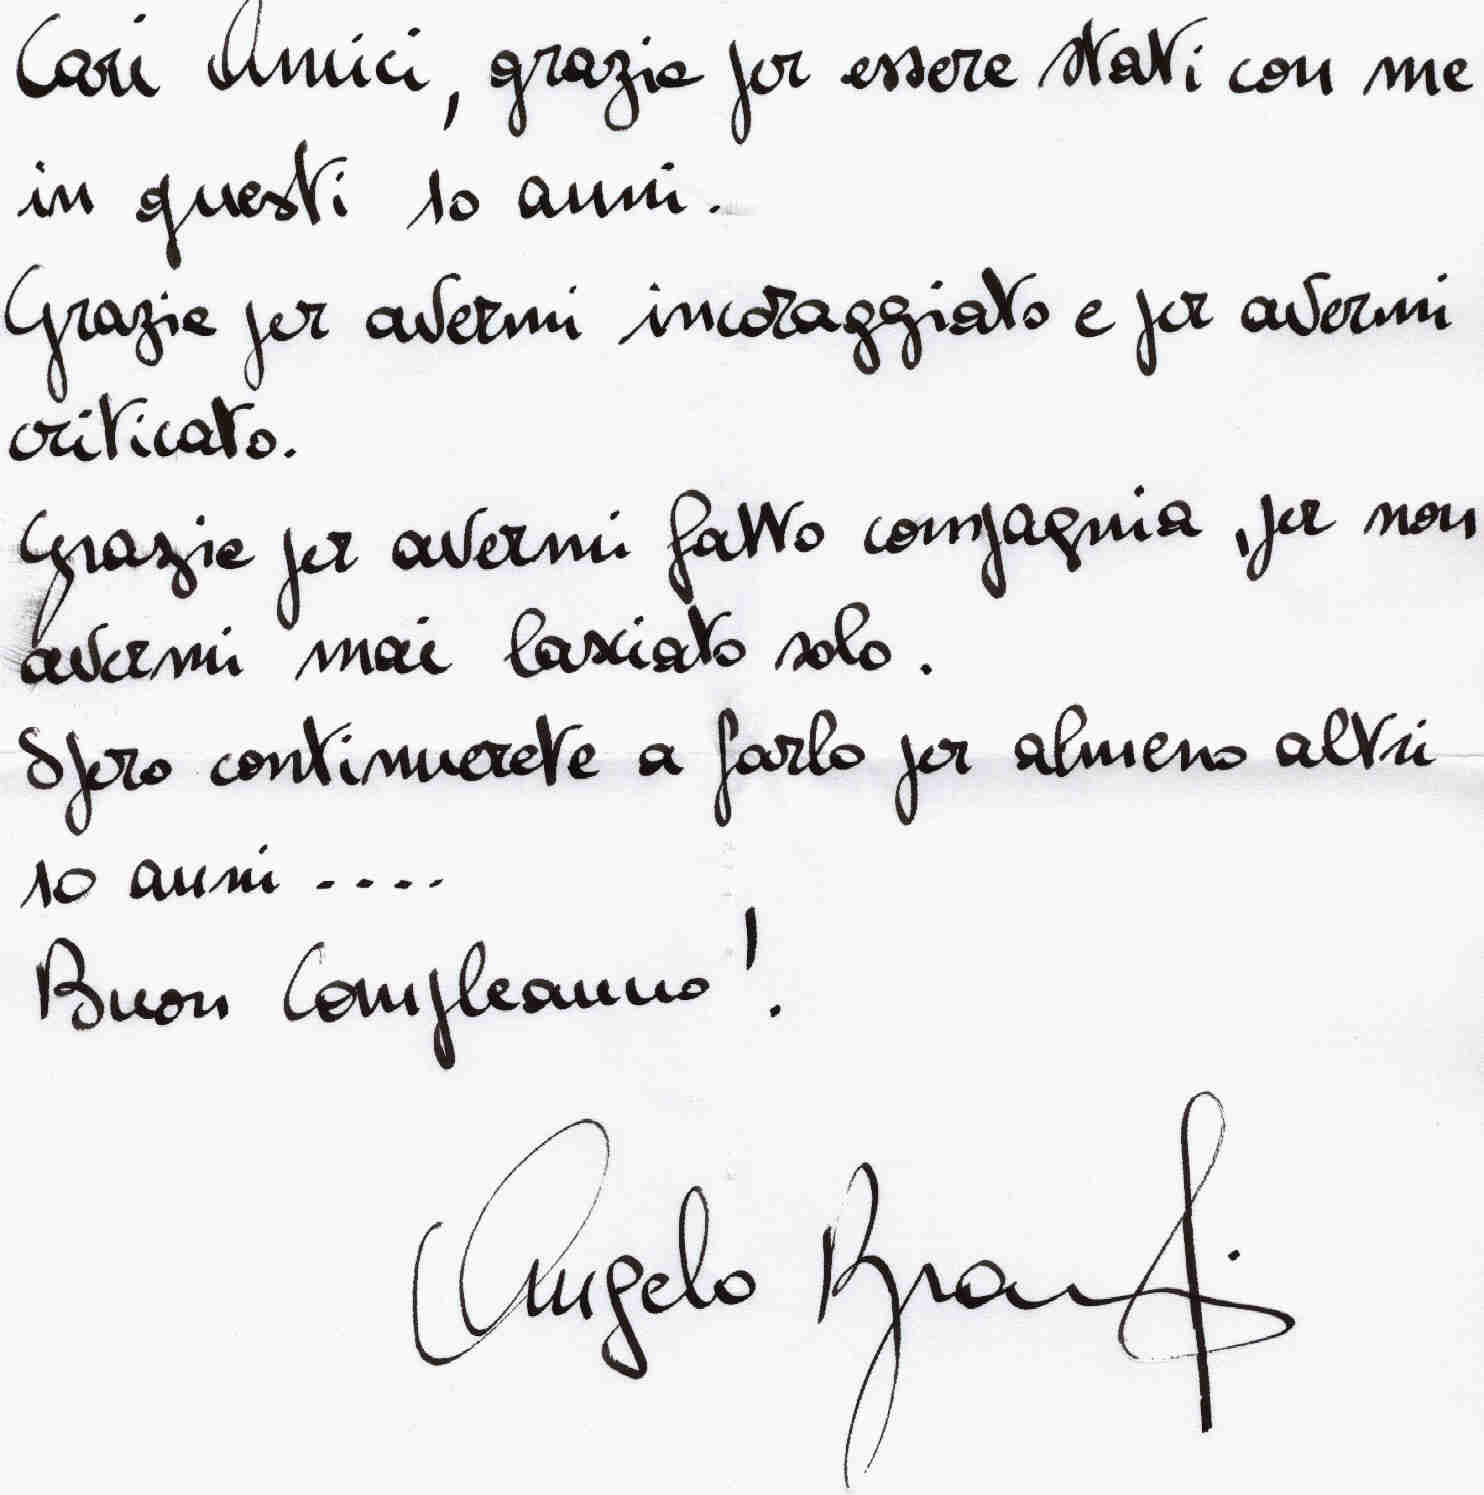 Cari Amici, grazie per essere stati con me
in questi 10 anni.
Grazie per avermi incoraggiato e per avermi
criticato.
Grazie per avermi fatto compagnia, per non
avermi mai lasciato solo.
Spero continuerete a farlo per almeno altri
10 anni ....
Buon Compleanno!
Angelo